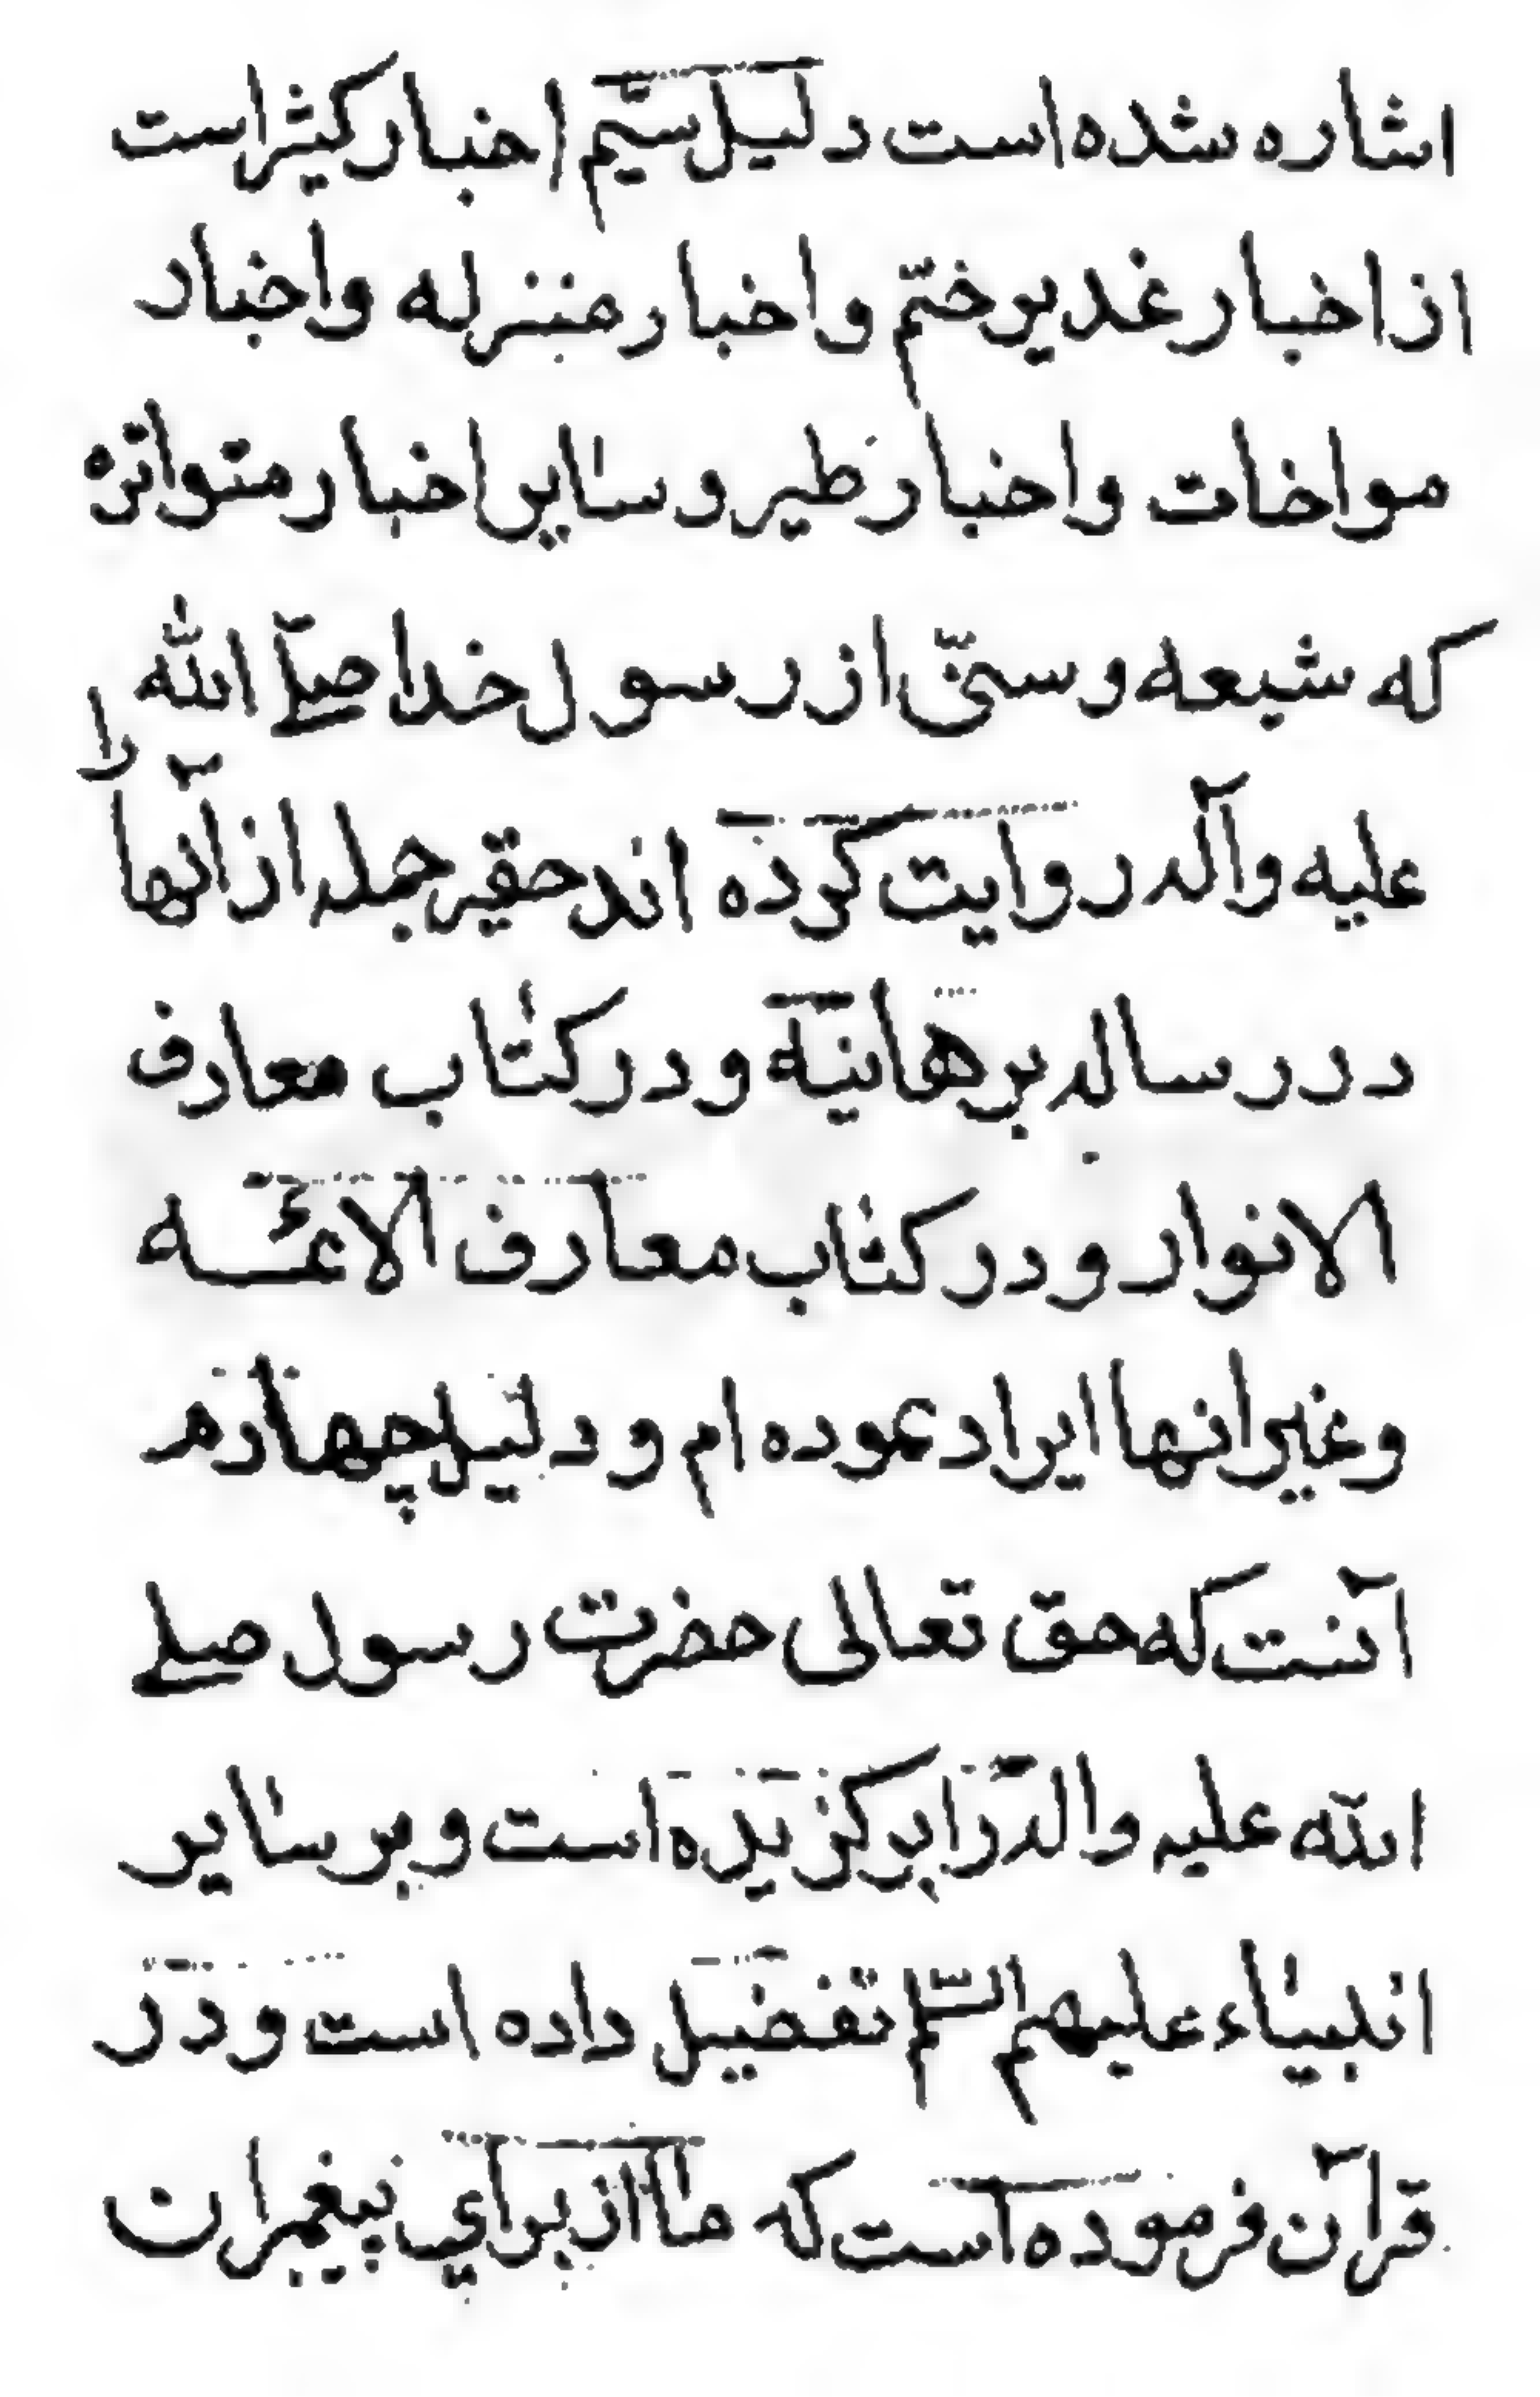 اشاره شده است دلیل سیّم اخبار کثیر است
از اخبار غدیر ختّم و اخبار منزله و اخبار
مواخات و اخبار طیر و سایر اخبار متواتره
که شیعه و سنّی از رسول خدا صلّی الله
علیه و آله روایت کرده اند حقیر جمله از آنها را
در رساله برهانیّه و در کتاب معارف
الانوار و در کتاب معارف الائمّه
و غیر انها ایراد نموده ام و دلیل چهارم
آنست که حقّ تعالی حضرت رسول صلی
الله علیه و اله را برکزیده است و بر سایر
انبیاء علیهم السّلم تفضیل داده است و در
قرآن فرموده است که ما از برای پیغمبران